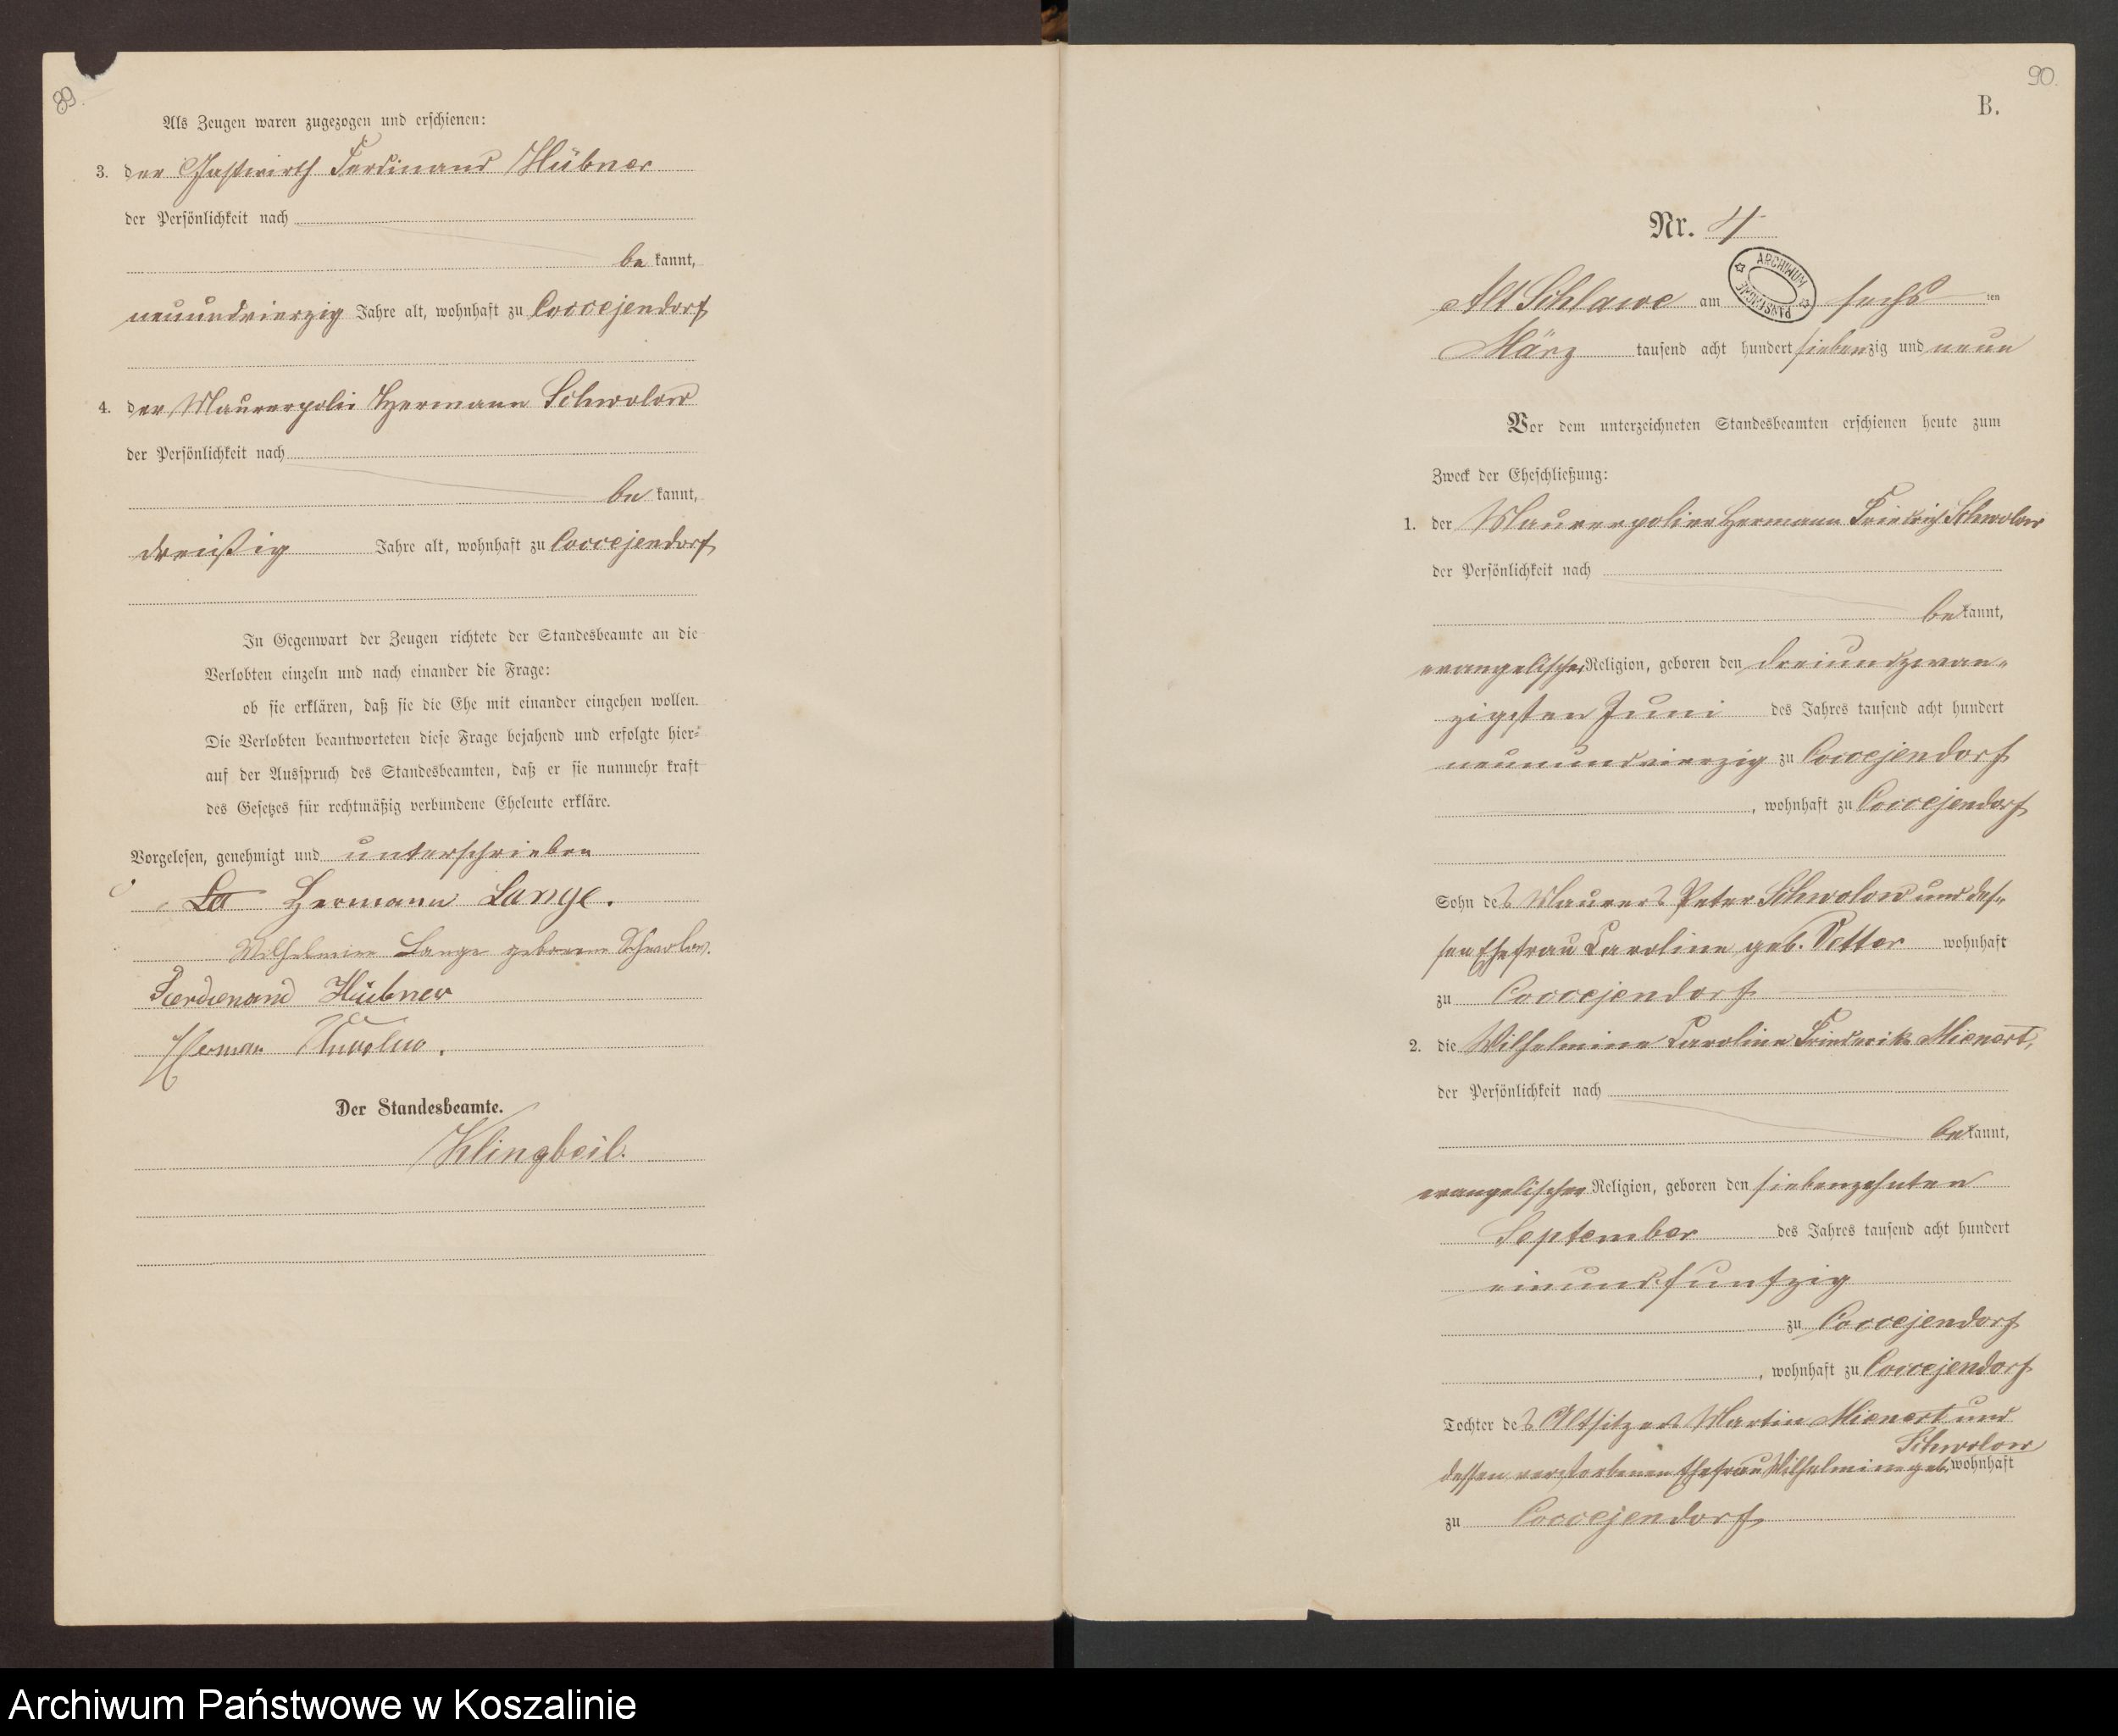 89.
Als Zeugen waren zugezogen und erschienen:
3. der Gastwirth Ferdinand Hübner
der Persönlichkeit nach
be kannt,
neunundvierzig Jahre alt, wohnhaft zu Coccejendorf
4. der Maurerpolir Hermann Schwolow
der Persönlichkeit nach
be kannt,
dreißig Jahre alt, wohnhaft zu Coccejendorf
In Gegenwart der Zeugen richtete der Standesbeamte an die
Verlobten einzeln und nach einander die Frage:
ob sie erklären, daß sie die Ehe mit einander eingehen wollen.
Die Verlobten beantworteten diese Frage bejahend und erfolgte hier-
auf der Ausspruch des Standesbeamten, daß er sie nunmehr kraft
des Gesetzes für rechtmäßig verbundene Eheleute erkläre.
Vorgelesen, genehmigt und unterschrieben
La Hermann Lange.
Wilhelmine Lange geborene Schwolow.
Ferdienand Hübner
Herman
Der Standesbeamte.
Klingbeil.
90.
B.
Nr. 4
ARCHIWUM PAŃSTWOWE
Alt Schlawe am sechs ten
März tausend acht hundert siebenzig und neun
Vor dem unterzeichneten Standesbeamten erschienen heute zum
Zweck der Eheschließung:
1. der Maurerpolier Hermann Friedrich Schwolow
der Persönlichkeit nach
be kannt,
evangelischer Religion, geboren den dreiundzwan-
zigsten Juni des Jahres tausend acht hundert
neunundvierzig zu Coccejendorf
, wohnhaft zu Coccejendorf
Sohn des Maurers Peter Schwolow und des-
sen Ehefrau Caroline geb. Vetter wohnhaft
zu Coccejendorf
2. die Wilhelmine Caroline Friederike Mienert,
der Persönlichkeit nach
be kannt,
evangelischer Religion, geboren den siebenzehnten
September des Jahres tausend acht hundert
einundfunfzig
zu Coccejendorf
, wohnhaft zu Coccejendorf
Tochter des Altsitzers Martin Mienert und
Schwolow
dessen verstorbenen Ehefrau Wilhelmine geb. wohnhaft
zu Coccejendorf
Archiwum Państwowe w Koszalinie